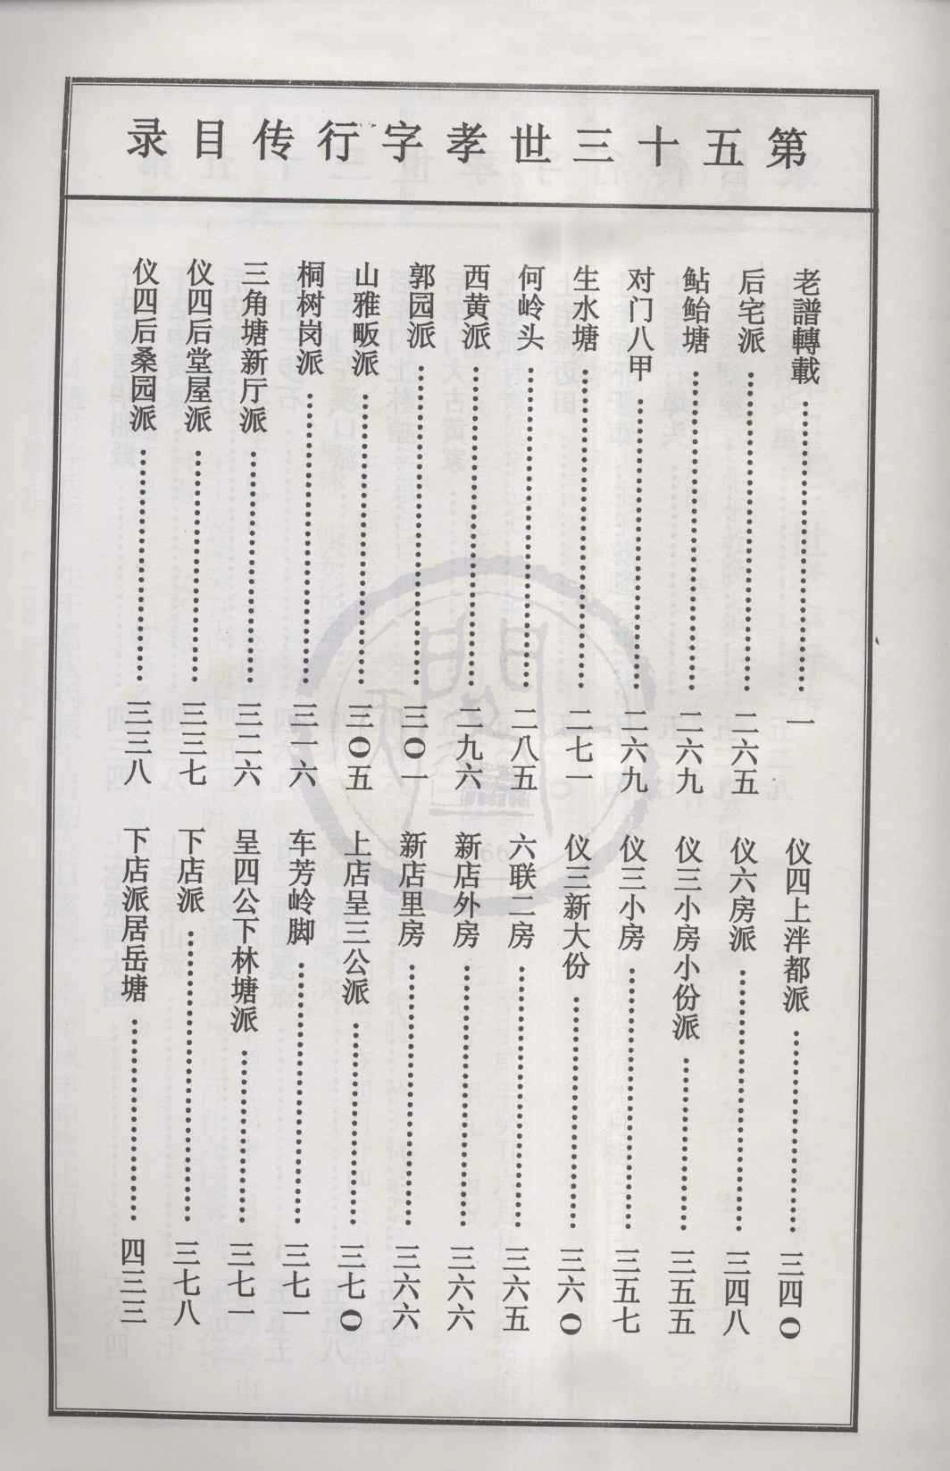 第五十三世孝字行传目录
老譜轉載……一
后宅派……二六五
鲇鲐塘……二六九
对门八甲……二六九
生水塘……二七一
何岭头……二八五
西黄派……二九六
郭园派……三〇一
山雅畈派……三〇五
桐树岗派……三一六
三角塘新厅派……三二六
仪四后堂屋派……三三七
仪四后桑园派……三三八
仪四上泮都派……三四〇
仪六房派……三四八
仪三小房小份派……三五五
仪三小房……三五七
仪三新大份……三六〇
六联二房……三六五
新店外房……三六六
新店里房……三六六
上店呈三公派……三七〇
车芳岭脚……三七一
呈四公下林塘派……三七一
下店派……三七八
下店派居岳塘……四三三